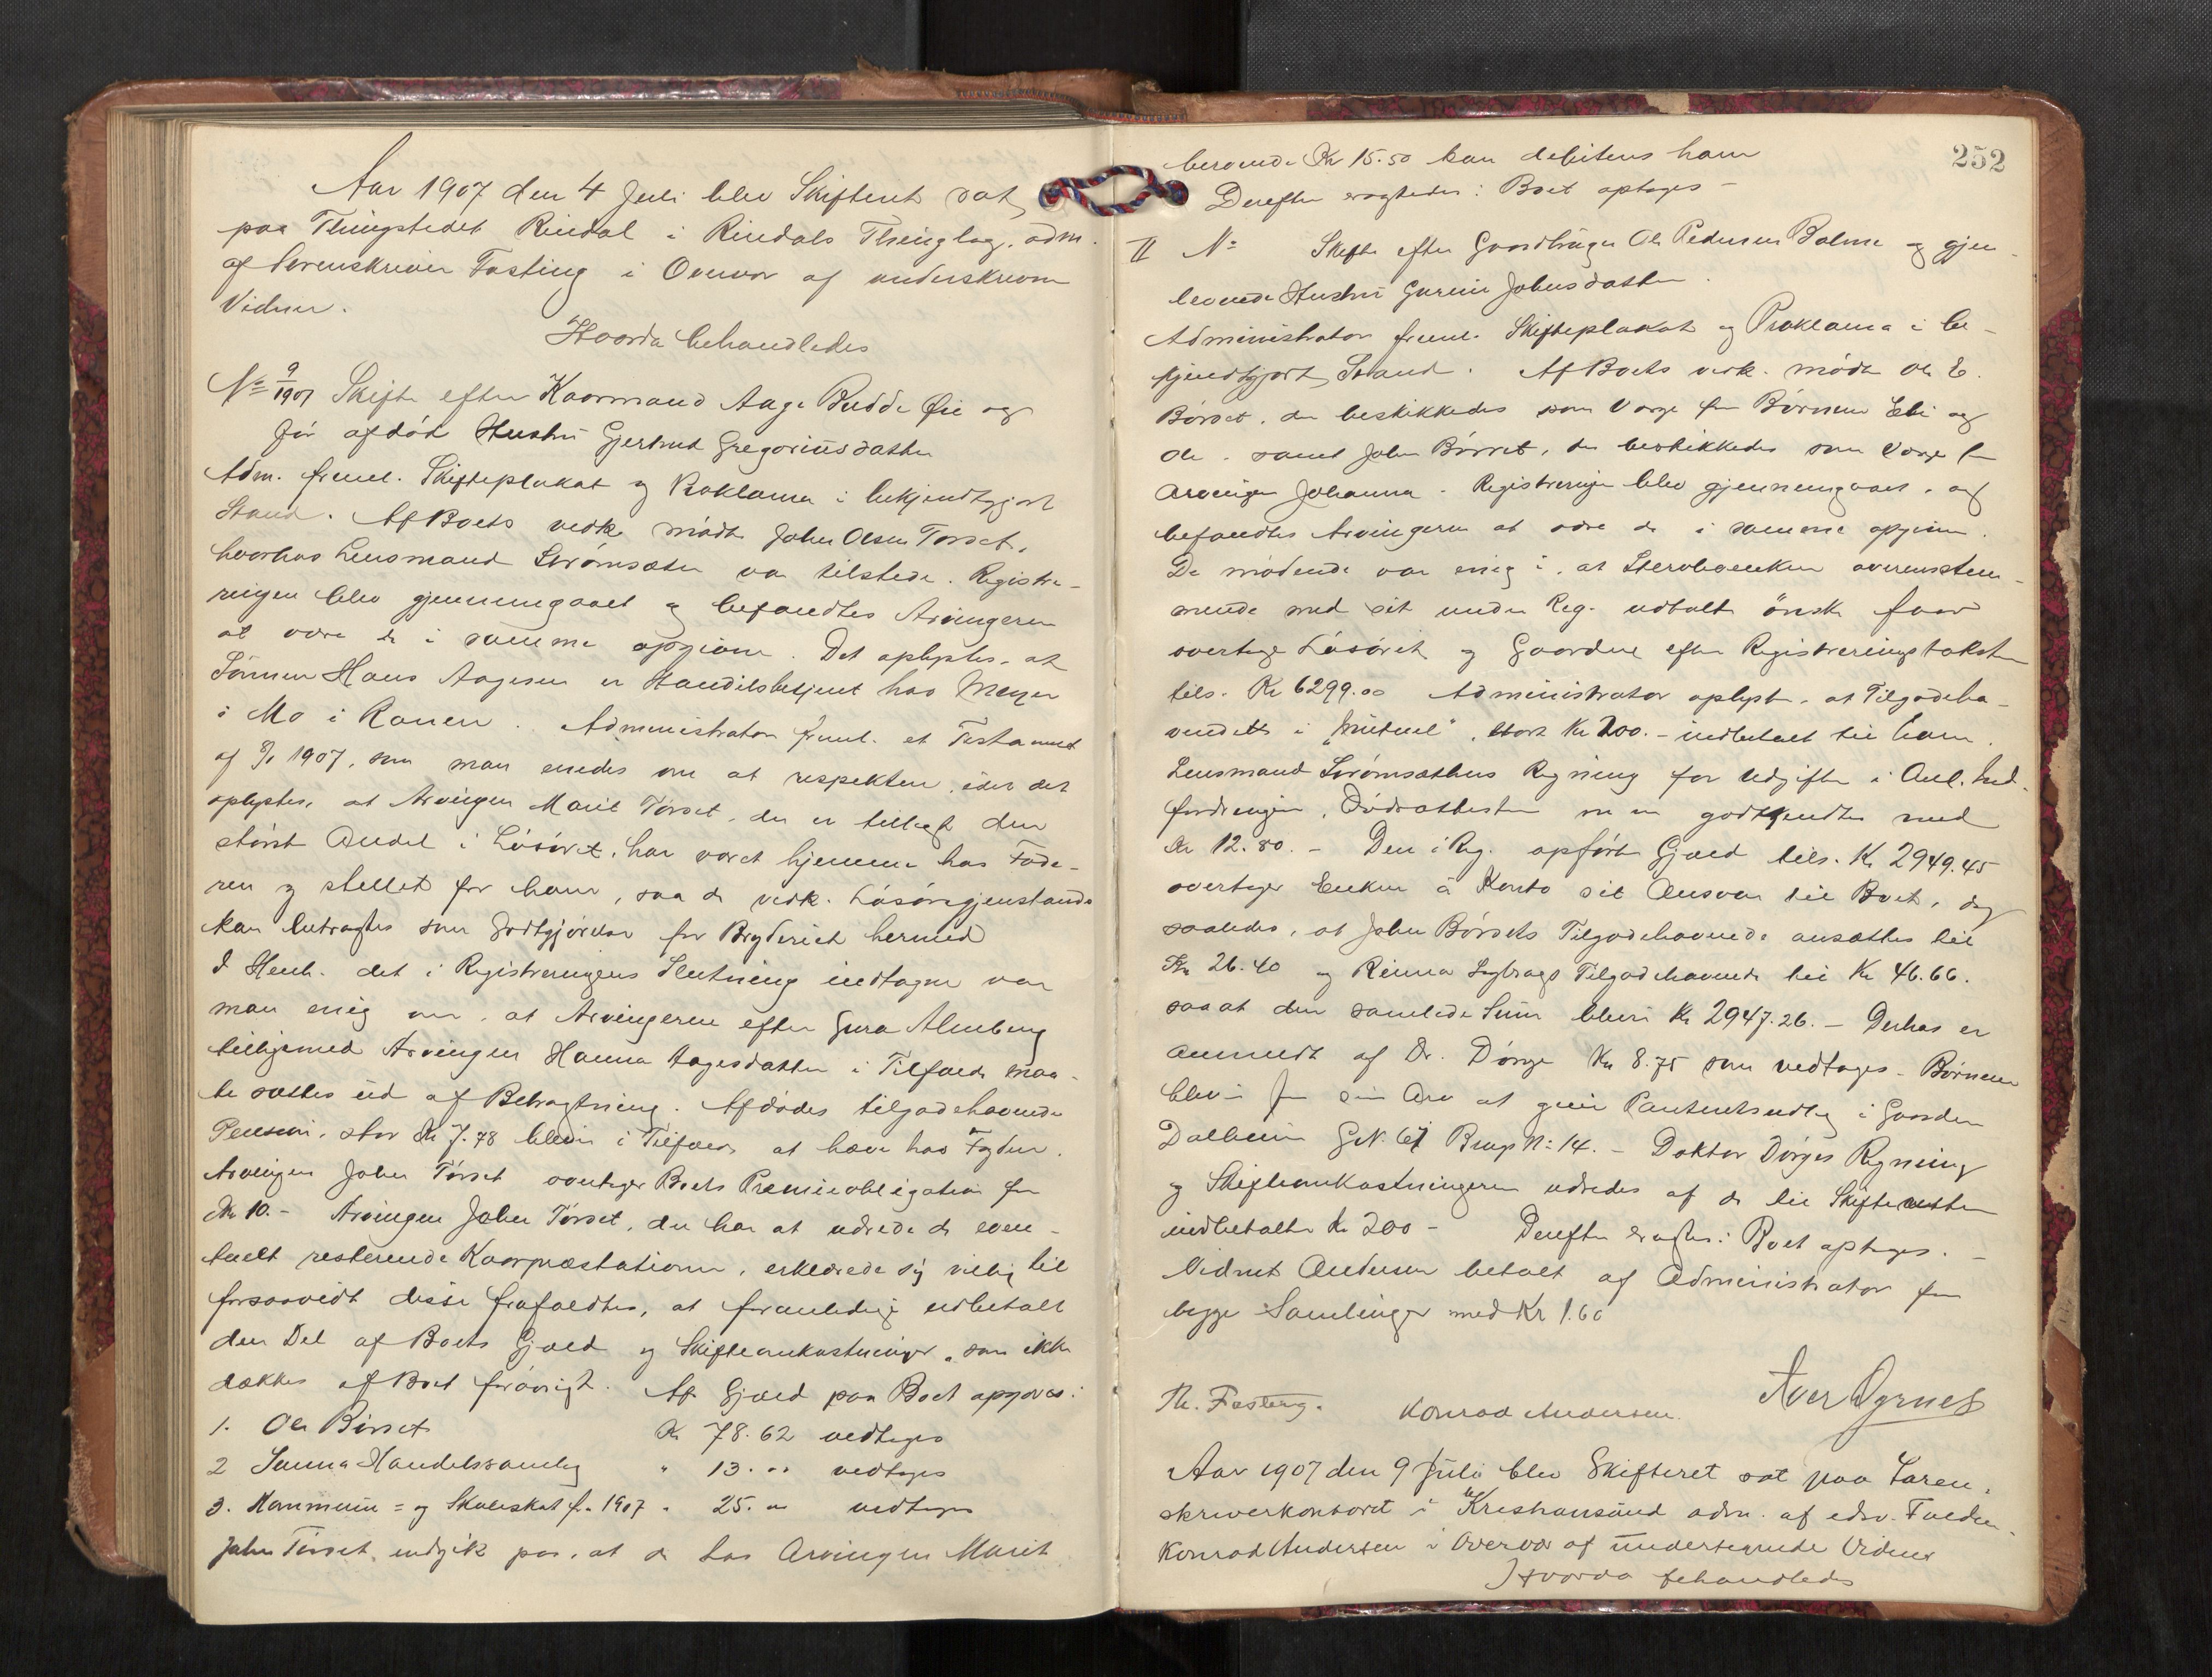 Aar 1907 den 4 Juli blev Skifteret sat
paa Thingstedet Rindal i Rindals Thinglag, adm.
af Sorenskriver Fasting i Overvær af underskrevne
Vidner.
Hvorda behandledes
No 9/1907 Skifte efter Kaarmand Aage Budde Øie og
før afdød Hustru Gjertrud Gregoriusdatter
Adm. freml. Skifteplakat og Proklama i bekjendtgjort
Stand. Af Boets vedk. mødte John Olsen Tørset,
hvorhos Lensmand Strømsæter var tilstede. Registre-
ringen blev gjennemgaaet og befandtes Arvingerne
at være de i samme opgivne. Det oplystes, at
Sønnen Hans Aagesen er Handelsbetjent hos Meyer
i Mo i Ranen. Administrator freml. et Testament
af 1907, som man enedes om at respektere, idet det
oplystes, at Arvingen Marit Tørset, der er tillagt den
største Andel i Løsøret, har været hjemme hos Fade-
ren og stellet for ham, saa de vedk. Løsøregjenstande
kan betragtes som Godtgjørelse for Bryderiet hermed
I Henh. det i Registreringens Slutning indtagne var
man enig om, at Arvingerne efter Gura Almberg
tilligemed Arvingen Hanna Aagesdatter i Tilfælde maa-
te sættes ud af Betragtning. Afdødes tilgodehavende
Pension, stor Kr 7.78 bliver i Tilfælde at hæve hos Fogden.
Arvingen John Tørset overtager Boets Premieobligation for
Kr 10.- Arvingen John Tørset, der har at udrede de even-
tuelt resterende Kaarpræstationer, erklærede sig villig til
forsaavidt disse frafaldtes, at foranledige udbetalt
den Del af Boets Gjæld og Skifteomkostninger, som ikke
dækkes af Boet forøvrigt. Af Gjæld paa Boet opgaves:
1. Ole Børset Kr 78.62 vedtages
2 Surna Handelssamlag " 13.00 vedtages
3. Kommune= og Skoleskat f. 1907 " 25.00 vedtages
John Tørset indgik paa, at de hos Arvingen Marit
252
beroende Kr 15.50 kan debiteres ham
Derefter eragtedes: Boet optages -
II No Skifte efter Gaardbruger Ole Pedersen Bolme og gjen-
levende Hustru Gurine Johnsdatter.
Administrator freml. Skifteplakat og Proklama i be-
kjendtgjort Stand. Af Boets vedk. mødte Ole E.
Børset, der beskikkedes som Værge for Børnene Eli og
Ole, samt John Børset, der beskikkedes som Værge for
Arvingen Johanna. Registreringen blev gjennemgaaet, og
befandtes Arvingerne at være de i samme opgivne.
De mødende var enig i, at Stervboenken overensstem-
mende med sit under Reg. udtalte ønske faar
overtage Løsøret og Gaardene efter Registreringstaksten
tils. Kr 6299.00 Administrator oplyste, at Tilgodeha-
vendet i "Mutuel", stort Kr 200.- indbetalt til ham.
Lensmand Strømsæthers Regning for Udgifter i Anl. Ind-
fordringen, Dødsattesten m.m godkjendtes med
Kr 12.80.- Den i Reg. opførte Gjæld tils. Kr 2949.45
overtager Enken á Konto sit Ansvar til Boet, dog
saaledes, at John Børsets Tilgodehavende ansættes til
Kr 26.40 og Rinna Sagbrugs Tilgodehavende til Kr 46.66.
saaat den samlede Sum bliver Kr 2947.26.- Derhos er
anmeldt af Dr. Dørge Kr 8.75 som vedtages. Børnene
bliver for sin Arv at give Panteretsudlæg i Gaarden
Dalheim GrN 67 Brugs No 14.- Doktor Dørges Regning
og Skifteomkostningerne udredes af de til Skifteretten
indbetalte Kr 200 - Derefter eragtes: Boet optages. -
Vidnet Andersen betalt af Administrator for
begge Samlinger med Kr 1.60
Th. Fasting. Konrad Andersen.
Aar 1907 den 9 Juli blev Skifteret sat paa Soren-
skriverkontoret i Kristiansund adm. af edsv. Fuldm.
Konrad Andersen i Overvær af undertegnede Vidner
Hvorda behandledes